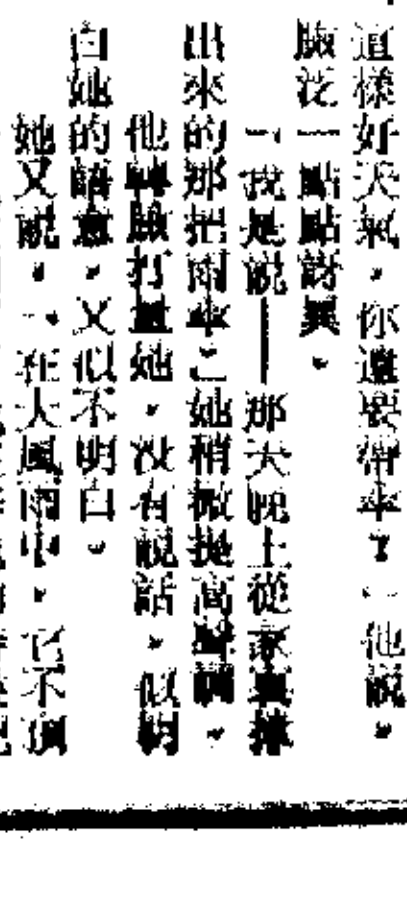 這樣好天氣，你還要彈傘？」他說，
臉泛一點點訝異。
「我是說——那天晚上從家裏撐
出來的那把雨傘」她稍微提高聲調。
他轉臉打量她，沒有說話，似明
白她的語意，又似不明白。
她又說，「在大風雨中，它不頂